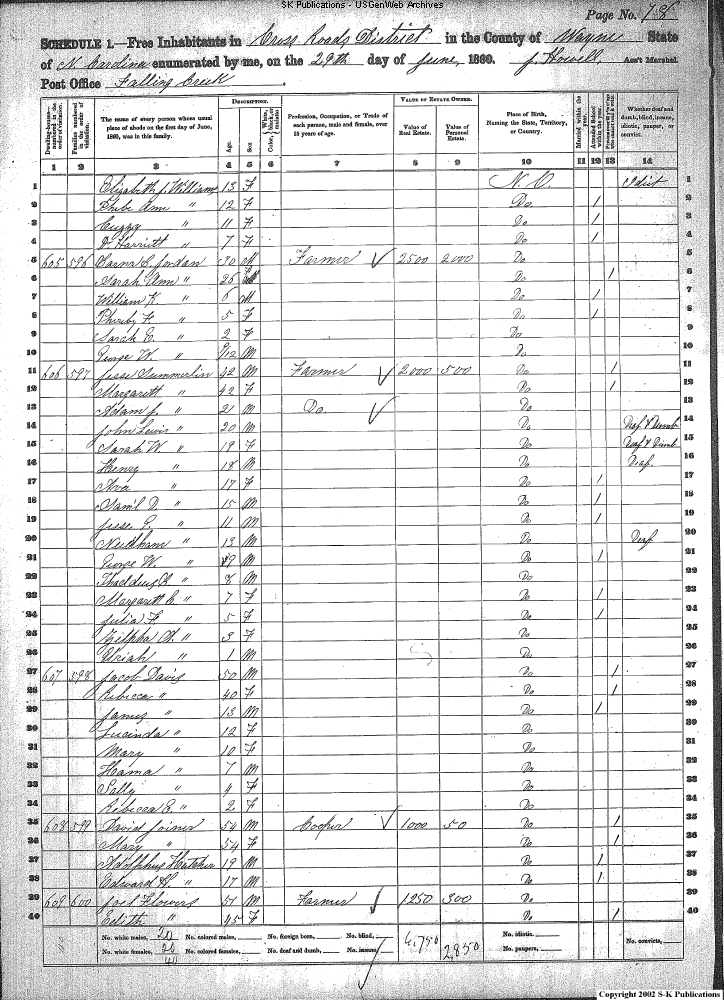 SK Publications - USGenWeb Archives
Page No. 78
SCHEDULE 1.—Free Inhabitants in Cross Roads District in the County of Wayne State
of N. Carolina enumerated by me, on the 29th day of June, 1860. J. Howell Ass't Marshal
Post Office Falling Creek.
DESCRIPTION. VALUE OF ESTATE OWNED.
Dwelling-houses—numbered in the order of visitation. Families numbered in the order of visitation. The name of every person whose usual place of abode on the first day of June, 1860, was in this family. Age. Sex. Color, White, black, or mulatto. Profession, Occupation, or Trade of each person, male and female, over 15 years of age. Value of Real Estate. Value of Personal Estate. Place of Birth, Naming the State, Territory, or Country. Married within the year. Attended School within the year. Whether deaf and dumb, blind, insane, idiotic, pauper, or convict.
1 2 3 4 5 6 7 8 9 10 11 12 13 14
1 Elizabeth J. Williams 13 F N. C. Idiot 1
2 Phibe Ann " 12 F Do. / 2
3 " 11 F Do / 3
4 D. Harriett " 7 F Do / 4
5 605 596 Jordan 30 M Farmer ✓ 2500 2000 Do 5
6 Sarah Ann " 26 Do / 6
7 William K. " 6 M Do / 7
8 " 5 F Do / 8
9 Sarah E. " 2 F Do 9
10 George W. " 9/12 M Do 10
11 606 597 Jesse Summerlin 42 M Farmer ✓ 2000 500 Do / 11
12 Margarett " 42 F Do / 12
13 Adam J. " 21 M Do. ✓ Do 13
14 John Lewis " 20 M Do Deaf & Dumb 14
15 Sarah W. " 19 F Do Deaf & Dumb 15
16 Henry " 18 M Do Deaf. 16
17 Ava " 17 F Do / 17
18 Sam'l D. " 15 M Do / 18
19 Jesse P. " 11 M Do / 19
20 Needham " 13 M Do Deaf 20
21 George W. " 9 M Do / 21
22 " 8 M Do 22
23 Margarett " 7 F Do / 23
24 Julia F. " 5 F Do / 24
25 Zilpha " 3 F Do 25
26 Uriah " 1 M Do 26
27 607 598 Jacob Davis 50 M Do / 27
28 Rebecca " 40 F Do / 28
29 James " 13 M Do / 29
30 Lucinda " 12 F Do 30
31 Mary " 10 F Do 31
32 " 7 M Do 32
33 Sally " 4 F Do 33
34 Rebecca E. " 2 F Do 34
35 608 599 David Joiner 54 M Cooper ✓ 1000 50 Do / 35
36 Mary " 54 F Do / 36
37 Adolphus Hatcher 19 M Do / 37
38 Edward " 17 M Do / 38
39 609 600 Joel Flowers 51 M Farmer ✓ 1250 300 Do 39
40 Edith " 45 F Do / 40
No. white males, 20 No. colored males, No. foreign born, No. blind, 6,750 2,850 No. idiotic, No. convicts,
No. white females, 20 No. colored females, No. deaf and dumb, No. insane, No. paupers,
40
Copyright 2002 S-K Publications